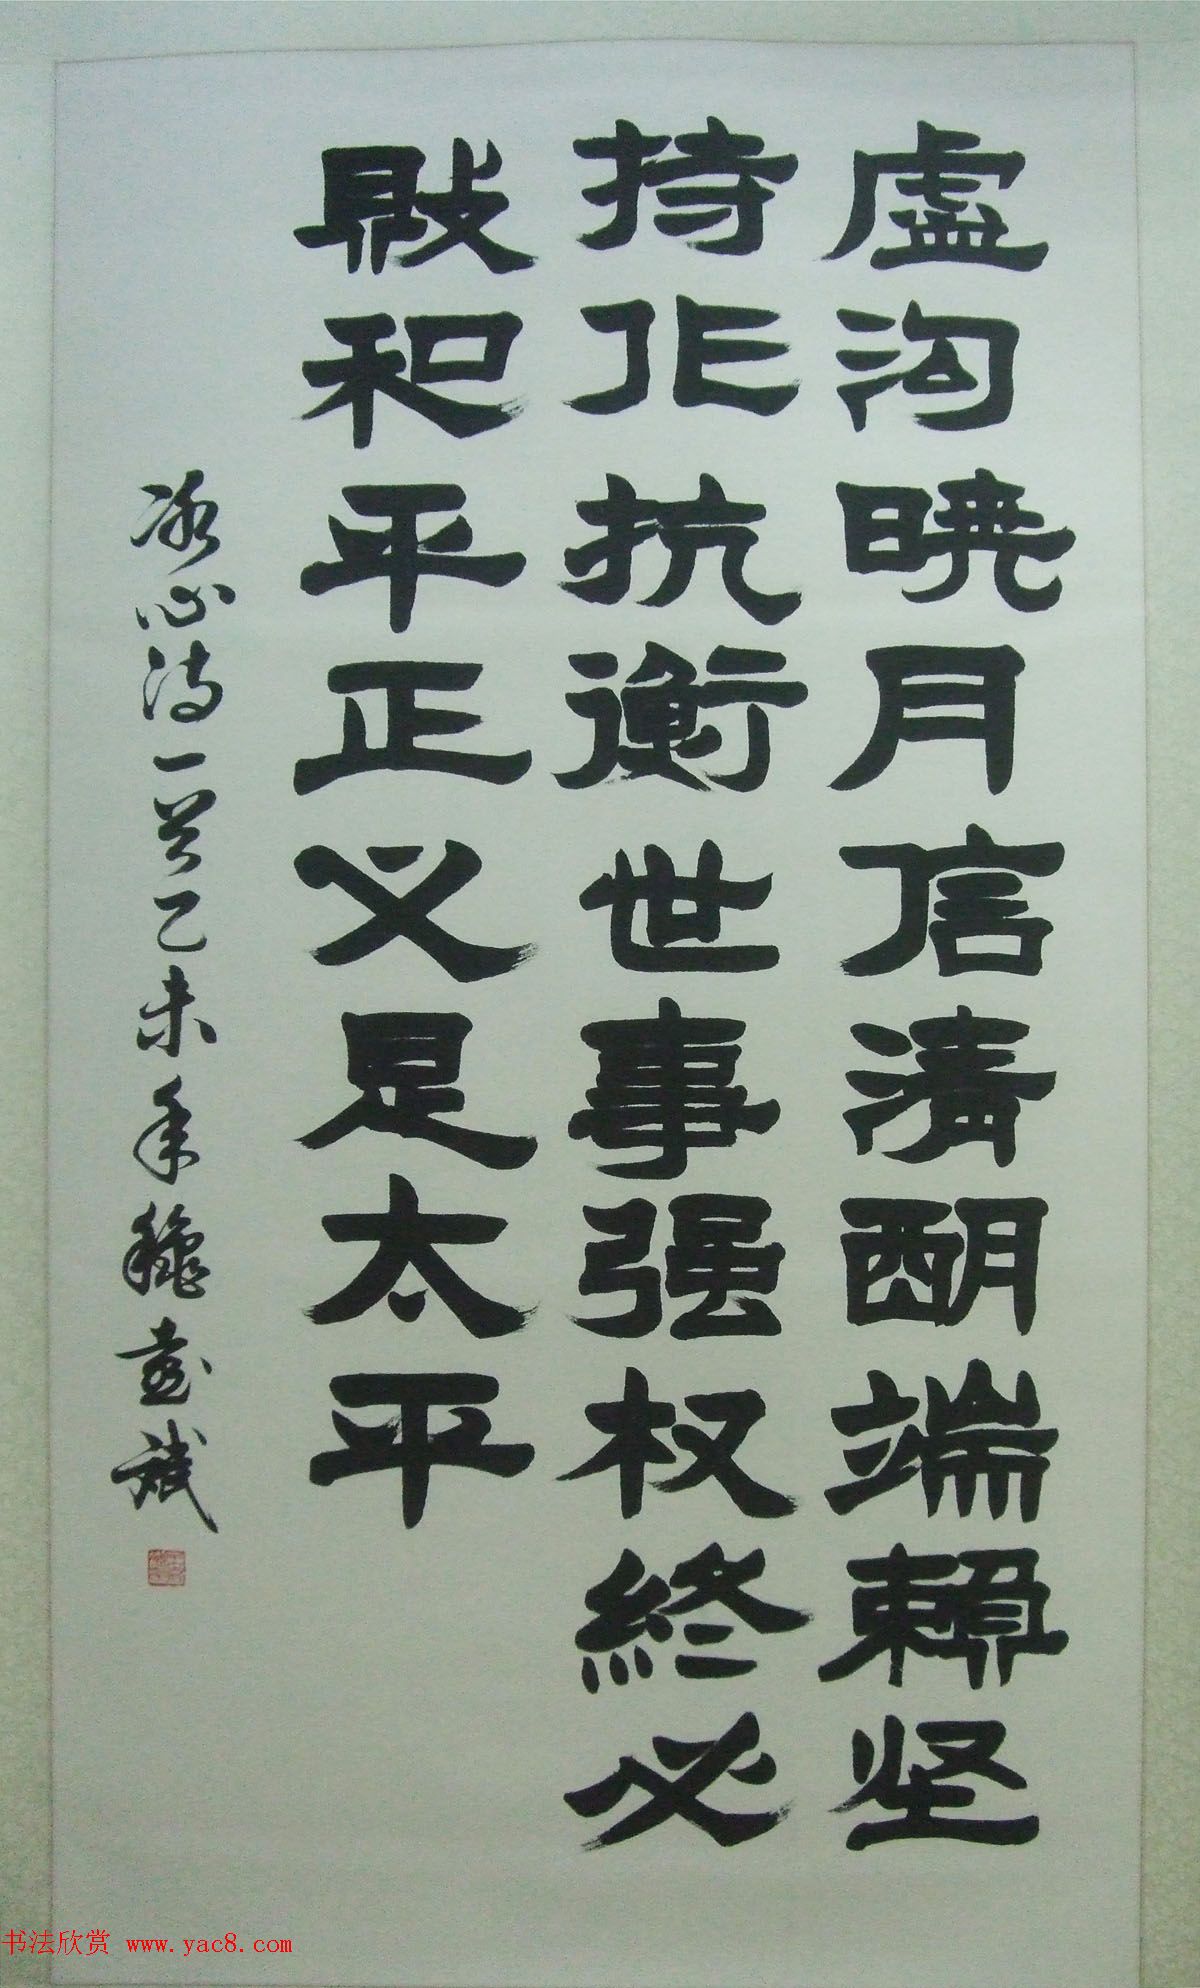 盧沟暁月信清朙端賴坚
持作抗衡世事强权終必
敗和平正义是太平
冰心诗一首乙未年龝斌
书法欣赏 www.yac8.com